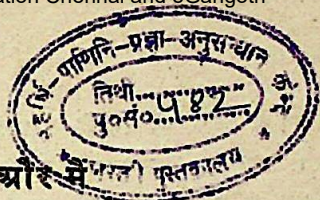 ation Chennai and eGangotri
पाणिनि-प्रज्ञा-अनुसन्धान
तिथी
पु०सं० 482
पुस्तकालय
और मैं